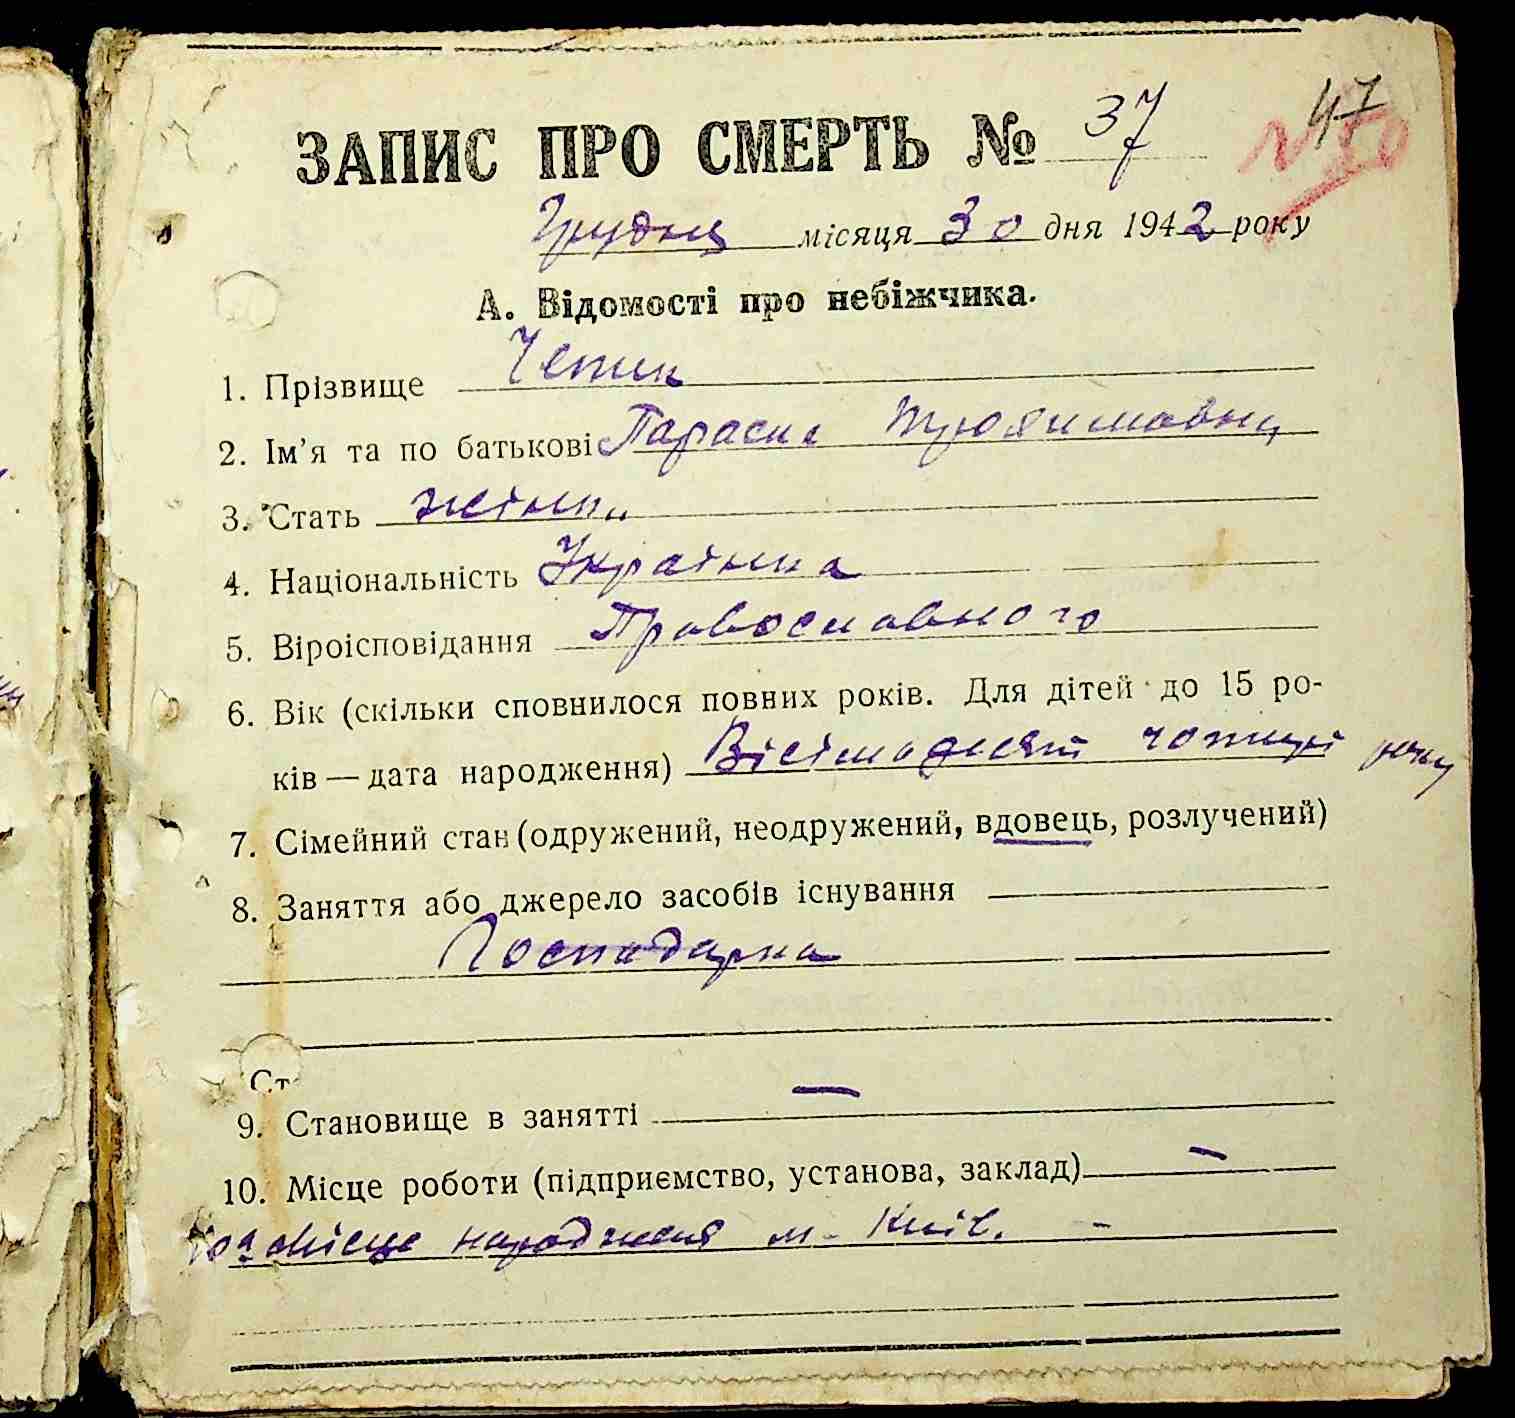 47
ЗАПИС ПРО СМЕРТЬ № 37
Грудня місяця 30 дня 1942 року
А. Відомості про небіжчика.
1. Прізвище
2. Ім'я та по батькові Параска
3. Стать жіноч.
4. Національність Українка
5. Віроісповідання Православного
6. Вік (скільки сповнилося повних років. Для дітей до 15 ро-
ків — дата народження) Вісімдесят чотирі роки
7. Сімейний стан (одружений, неодружений, вдовець, розлучений)
8. Заняття або джерело засобів існування
Господарка
Ст
9. Становище в занятті —
10. Місце роботи (підприємство, установа, заклад) —
10а Місце народження м. Київ. –